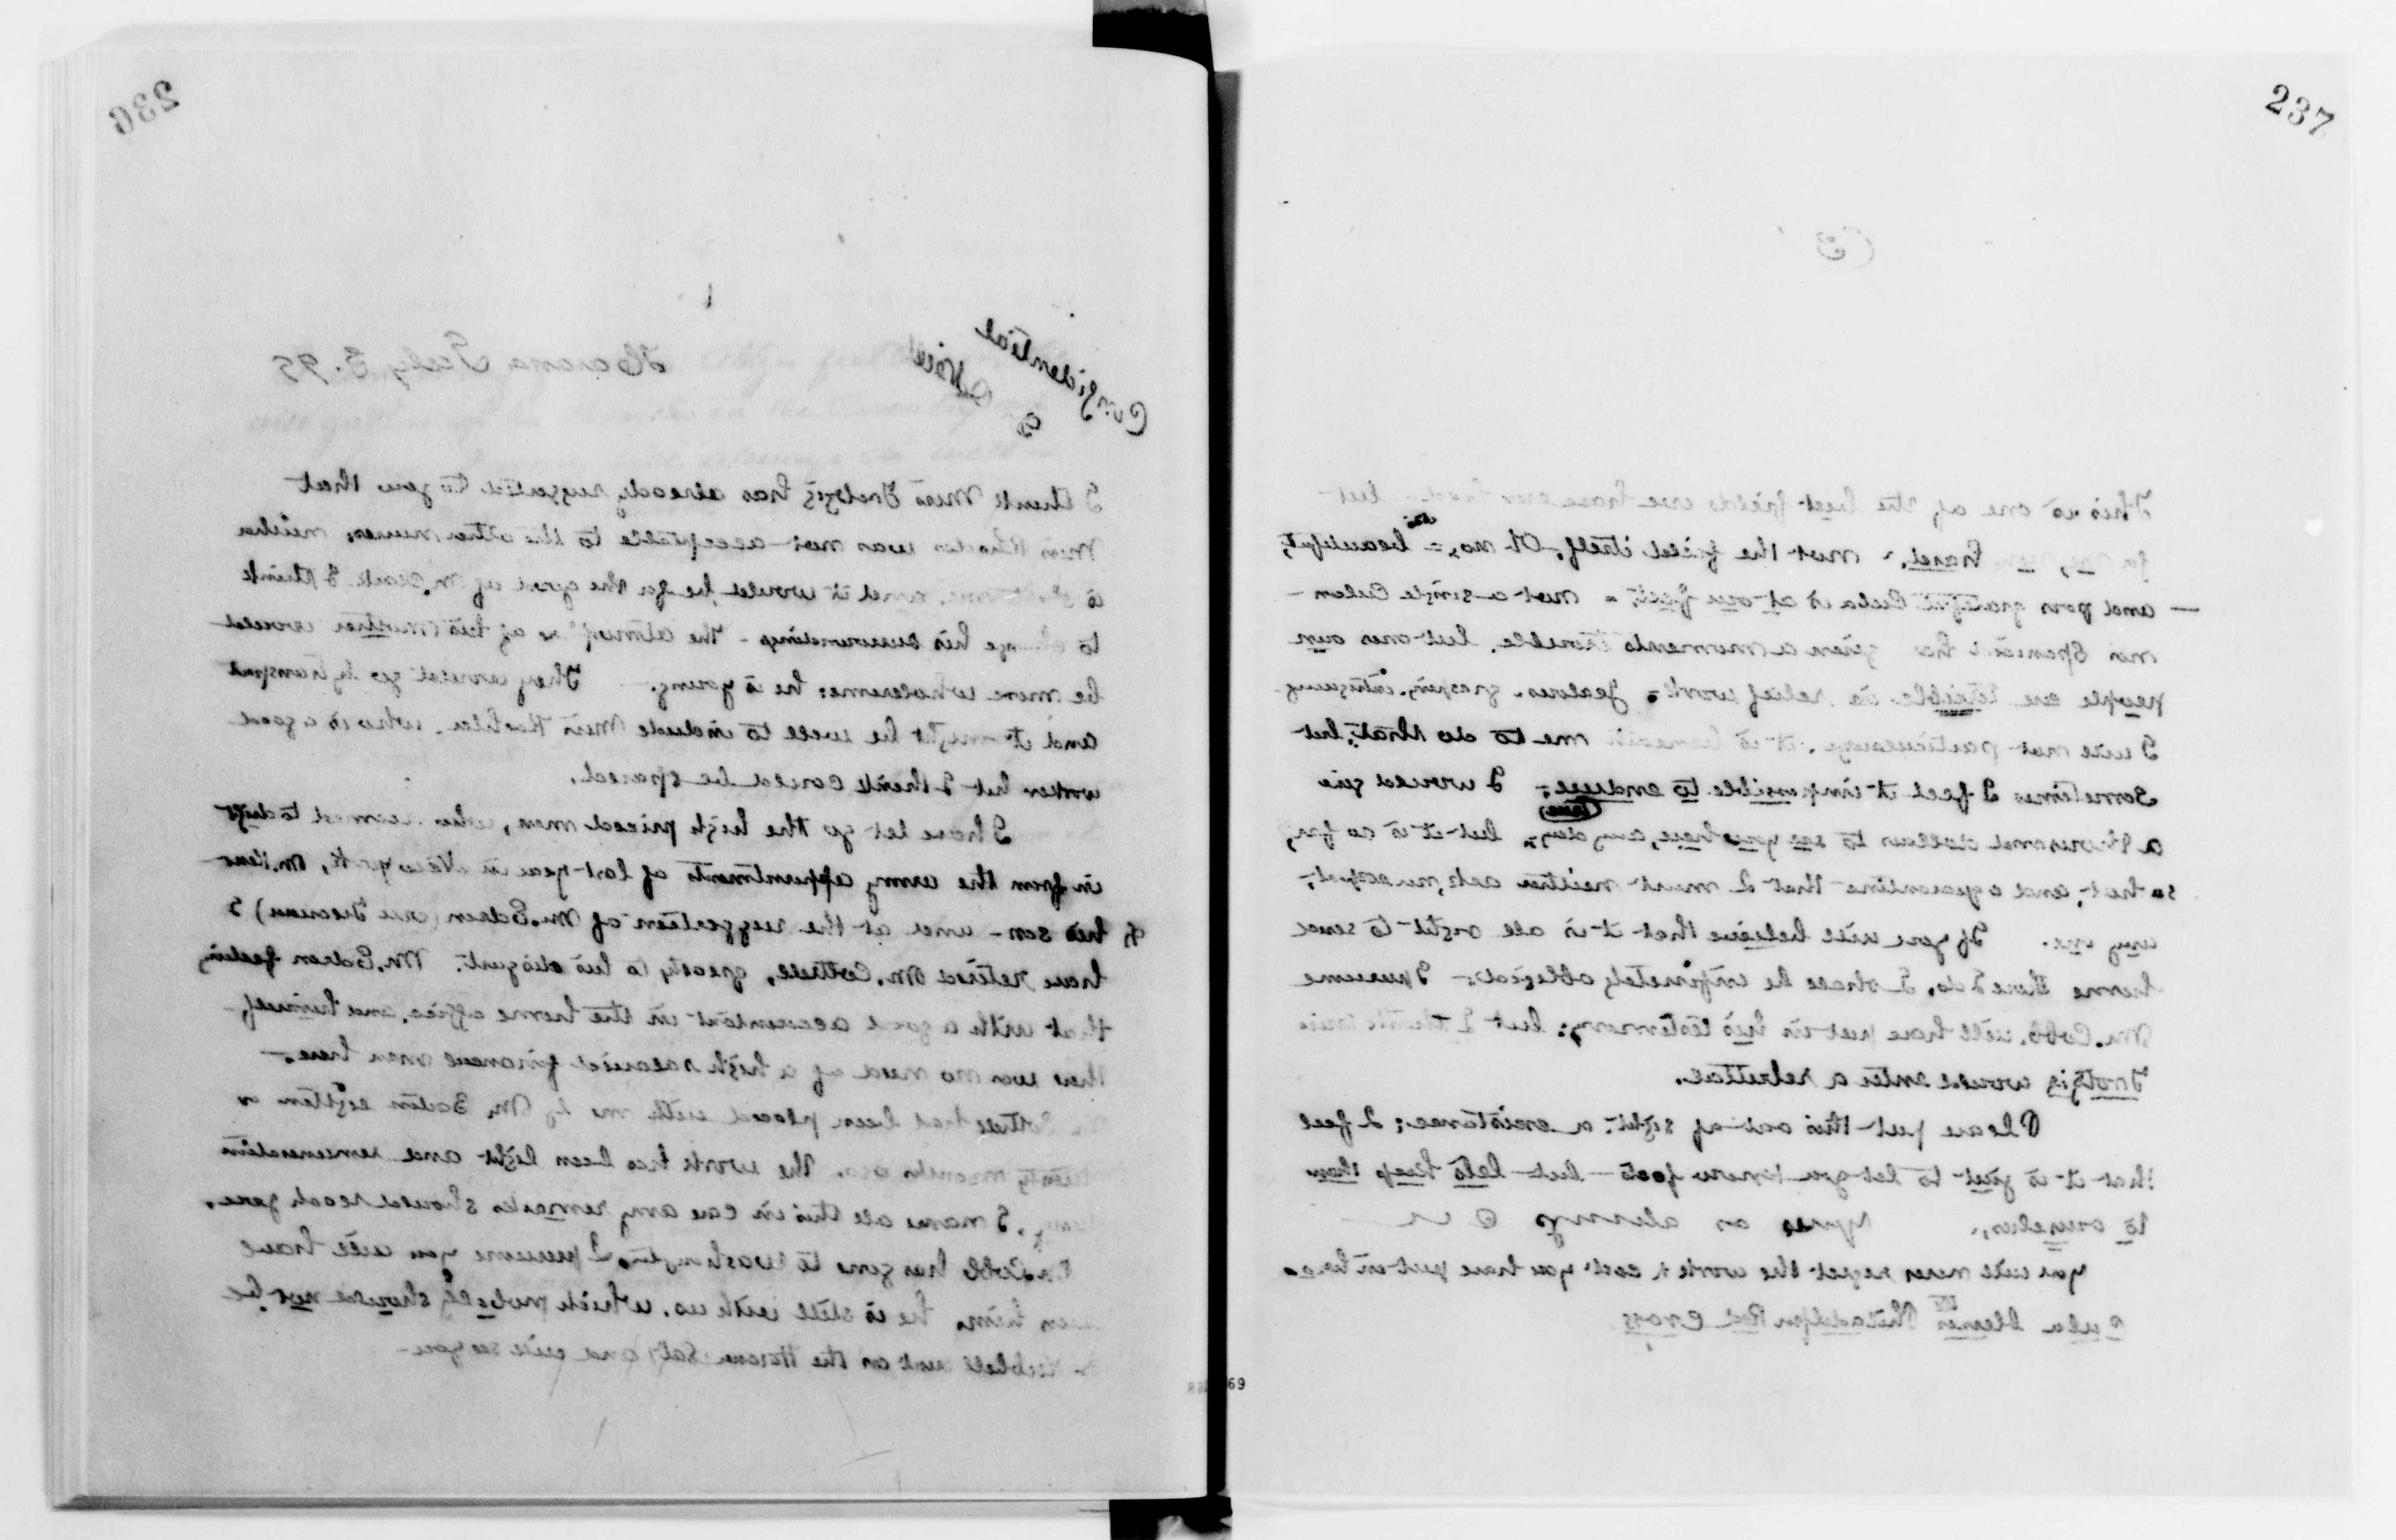 236
Confidential
Note
Havana July 3. 99
I think Miss has already suggested to you that
Miss Rhodes was not acceptable to the other nurses, neither
is and it would be for the good of M. I think
to change his surroundings - The of his mother would
be more wholesome: he is young. They would go by transport
and it might be well to include Miss who is a good
worker but I think could be spared.
I have let go the high priced men, who seemed to drift
in from the army appointments of last year in New York, Mr. Kent
& his son - and at the suggestion of Mr. Edson (our Treasurer) I
have retired Mr. Cottrell, greatly to his disgust. Mr. Edson feeling
that with a good accountant in the home office, and himself,
there was no need of a high salaried financial man here.
Cottrell had been placed with me by Mr. Barton eighteen or
twenty months ago. The work has been light and remuneration
I name all this in case any remarks should reach you.
Cobb has gone to Washington. I presume you will have
seen him. he is still with us, which probably should not be
Hubbell went on the Havana (Sat) and will see you -
237
(3)
This is one of the best fields we have ever had - but
hard, not the field itself, Oh no, - is beautiful,
- and poor grateful Cuba is at our feet, - not a single Cuban -
nor Spaniard has given a moments trouble, but ones own
people are terrible in relief work. Jealous, grasping, intriguing
I will not particularize, it is beneath me to do that, but
sometimes I feel it impossible to endure; I would give
a thousand dollars to see you here, any day, (here) but it is so far,
so hot, and a quarantine that I must neither ask, nor accept,
any one. If you will believe that it is all right to send
home those I do, I shall be infinitely obliged. I presume
Mr. Cobb, will have put in his testimony; but I think Miss
would enter a rebuttal.
Please put this out of sight & existence; I feel
that it is just to let you know facts - but lets keep them
to ourselves. Yours as always C B
You will never regret the work & cost you have put in here.
Cuba blesses the Philadelphia Red Cross
68 69